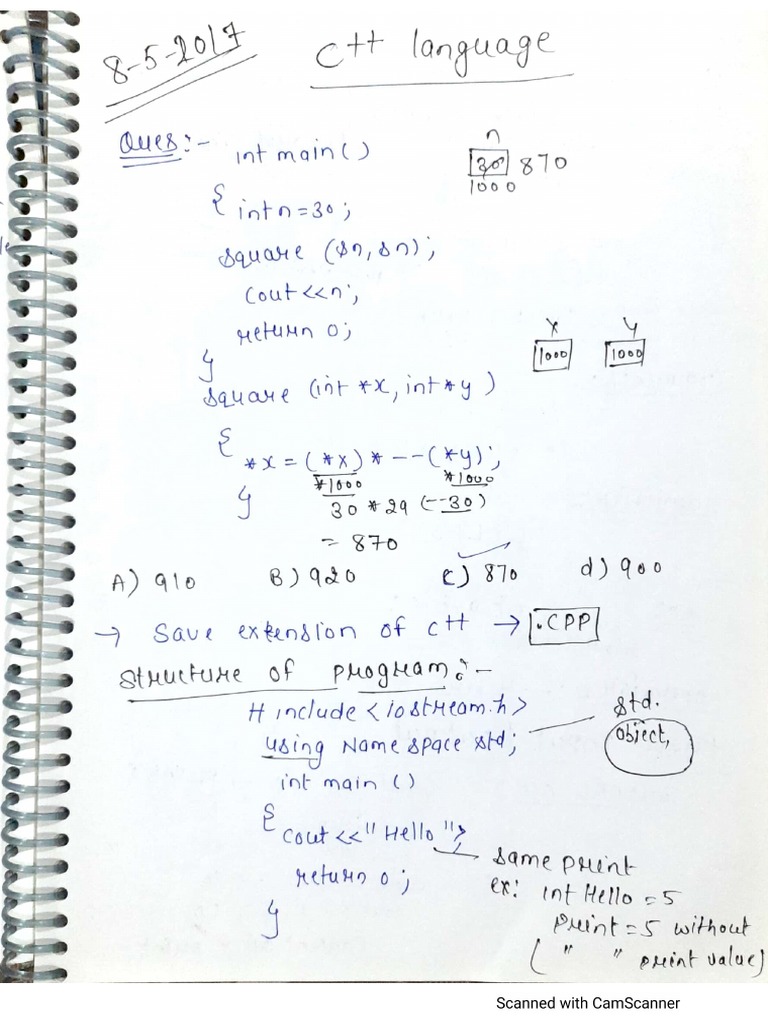 8-5-2017
C++ language
Ques:-
int main()
{ int n=30;
square (&n, &n);
cout <<n;
return 0;
}
n
30 870
1000
square (int *x, int *y)
x y
1000 1000
{
*x = (*x) * --(*y);
*1000 *1000
} 30 * 29 (--30)
= 870
A) 910 B) 920 c) 870 d) 900
→ Save extension of c++ → .CPP
Structure of program:-
# include <iostream.h>
using Name space std;
std.
object,
int main ()
{
cout << "Hello";
return 0;
}
same print
ex: int Hello = 5
print = 5 without
( " " print value)
Scanned with CamScanner